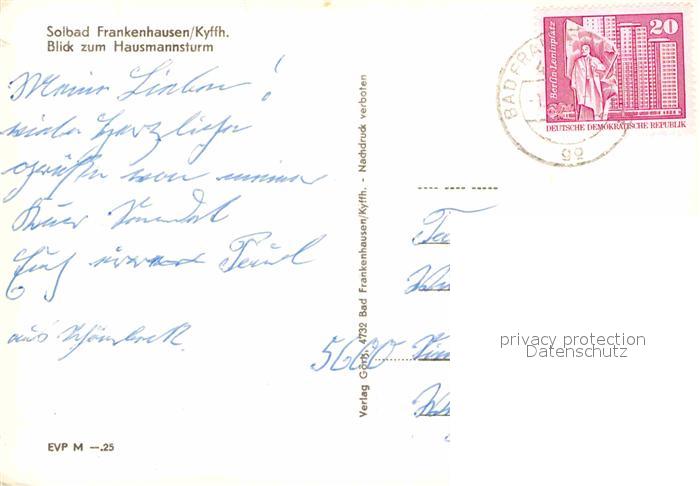 Solbad Frankenhausen/Kyffh.
Blick zum Hausmannsturm
Meine Lieben!
viele herzliche
Grüße von meiner
Kur sendet
Euch
aus Schönebeck.
EVP M —.25
Verlag Görtz, 4732 Bad Frankenhausen/Kyffh. - Nachdruck verboten
BAD FRA
Berlin-Leninplatz
20
DEUTSCHE DEMOKRATISCHE REPUBLIK
5600
privacy protection
Datenschutz